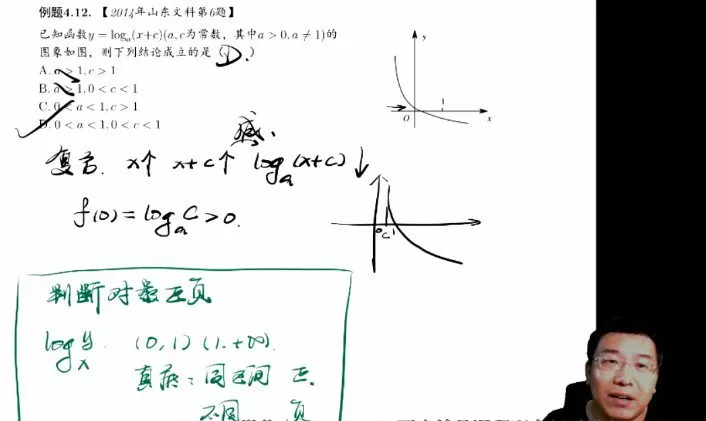 例题4.12. 【2014年山东文科第6题】
已知函数y = logₐ(x+c)(a,c为常数，其中a > 0, a ≠ 1)的
图象如图，则下列结论成立的是（D）
A. a > 1, c > 1
B. a > 1, 0 < c < 1
C. 0 < a < 1, c > 1
D. 0 < a < 1, 0 < c < 1
y
O 1 x
减.
复合. x↑ x+c↑ logₐ(x+c)↓
f(0)=logₐC>0.
0 C 1
判断对数正负
logₓy. (0,1) (1,+∞).
真底：同区间 正.
不同 负